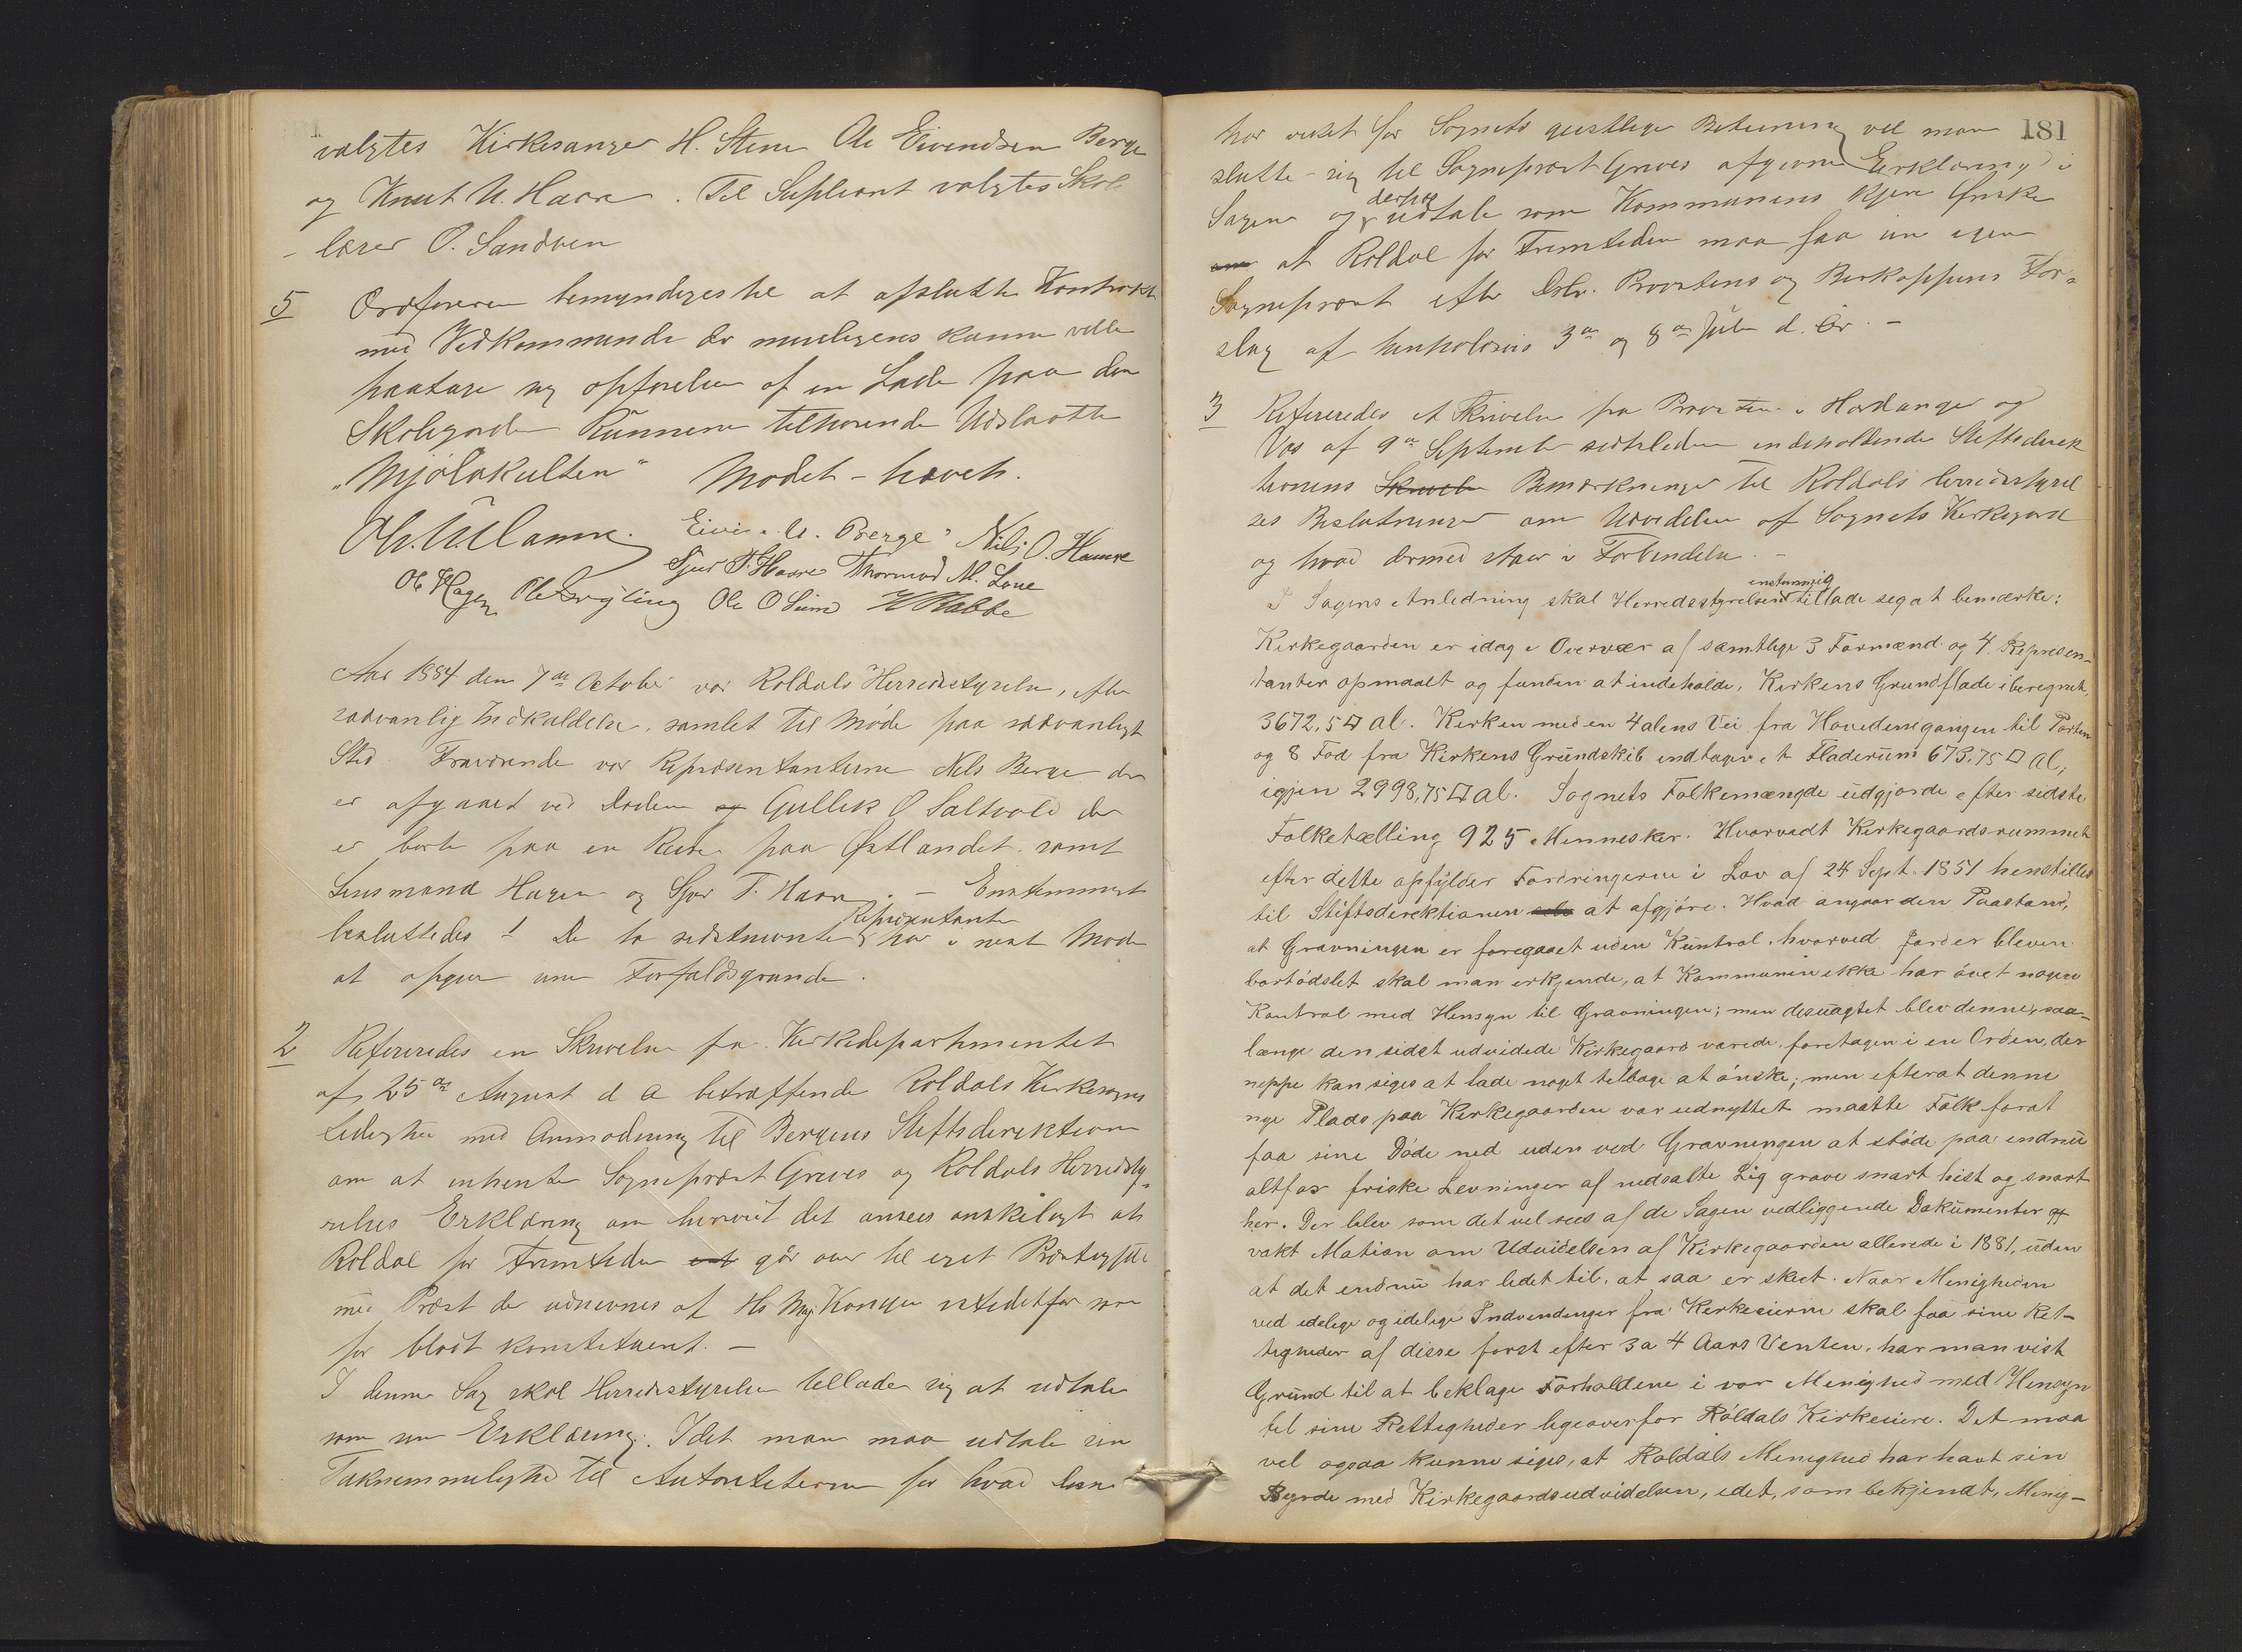 valgtes Kirkesanger H. Stene Ole Eivendsen Berge
og Knut N. Haara. Til Supleant valgtes Skole
- lærer O. Sandven
5 Ordføreren bemyndiges til at afslutte Kontrakt
med Vedkommende der muligens kunne ville
paatage sig opførelsen af en Lade paa den
Skolegarden Rünnene tilhørende Udslaatte
"Mjølnkulten" Mødet - hævet.
Eivi. U. Berge Nils O. Hamre
Sjur T. Haara Thormod M. Lone
Ole Hagen Ole O Lund H Rabbe
Aar 1884 den 7de October var Roldals Herredsstyrelse, efter
sædvanlig Indkaldelse, samlet til Møde paa sædvanligt
Sted Fraværende var Repræsentanterne Nils Berge der
er afgaaet ved Døden og Gullik O Saltvold der
er borte paa en Reise paa Østlandet. samt
Lensmand Hagen og Sjur T. Haara. - Enstemmigt
besluttedes 1 De to sidstnævnte Repræsentanter har i næst Møde
at opgive sine Forfaldsgrunde.
2 Refereredes en Skrivelse fra Kirkedepartementet
af 25de August d a betræffende Roldals Kirkesogns
Ledighed med Anmodning til Bergens Stiftsdirektion
om at inhente Sogneprest Greves og Roldals Herredsty-
relses Erklæring om hvorvit det ansees ønskeligt at
Roldal for Fremtiden gör over til eget Præstegjeld
med Præst der udnevnes af Hs Maj Kongen istedetfor som
før blodt konstitueret. -
I denne Sag skal Herredsstyrelsen tillade sig at udtale
som sin Erklæring. Idet man maa udtale sin
Taknemmelighed til Autoriteterne for hvad han
181
har virket for Sognets geistlige Betjening vil man
slutte sig til Sogneprest Greves afgivne Erklæring i
Sagen og derhos udtale som Kommunens kjære Ønske
at Roldal for Fremtiden maa faa sin egen
Sogneprest efter Provstens og Biskoppens For-
slag af henholdsvis 3de og 8de Juli d. Aar. -
3 Refereredes et Skrivelse fra Provsten i Hardanger og
Vos af 9de September sidstleden indeholdende Stiftsdirek
tionens Skrivelse Bemærkninger til Roldals Herredsstyrel
ses Beslutninger om Udvidelse af Sognets Kirkegard
og hvad dermed staar i Forbindelse. -
I Sagens Anledning skal Herredsstyrelsen enstemmig tillade seg at bemærke:
Kirkegaarden er idag i Overvær af samtlige 3 Formænd og 4 Represen-
tanter opmaalt og funden at indeholde, Kirkens Grundflade iberegnet,
3672,5 □ al. Kirken med en 4 alens Vei fra Hovedindgangen til Porten
og 8 Fod fra Kirkens Grundskib indtager et Fladerum 673,75 □ al,
igjen 2998,75 □ al. Sognets Folkemængde udgjorde efter sidste
Folketælling 925 Mennesker. Hvorvidt Kirkegaardsrummet
efter dette opfylder Fordringerne i Lov af 24 Sept. 1851 henstilles
til Stiftsdirektionen selv at afgjöre. Hvad angaar den Paastand,
at Gravningen er foregaaet uden Kuntrol, hvorved Jord er bleven
bortödslet skal man erkjende, at Kommunen ikke har övet nogen
Kontrol med Hensyn til Gravningen; men desuagtet blev denne, saa-
længe den sidst udvidede Kirkegaard varede, foretagen i en Orden, der
neppe kan siges at lade noget tilbage at önske; men efterat denne
nye Plads paa Kirkegaarden var udnyttet maatte Folk forat
faa sine Döde ned uden ved Gravningen at stöde paa endnu
altfor friske Levninger af nedsatte Lig grave snart hist og snart
her. Der blev som det vel sees af de Sagen vedliggende Dokumenter
vakt Motion om Udvidelsen af Kirkegaarden allerede i 1881, uden
at det endnu har ledet til, at saa er skeet. Naar Menigheden
ved idelige og idelige Indvendinger fra Kirkeeierne skal faa sine Ret-
tigheder af disse først efter 3 a 4 Aars Venten, har man vist
Grund til at beklage Forholdene i vor Menighed med Hensyn
til sine Rettigheder ligeoverfor Röldals Kirkeeiere. Det maa
vel ogsaa kunne siges, at Roldals Menighed har havt sin
Byrde med Kirkegaardsudvidelsen, idet, som bekjendt, Menig-